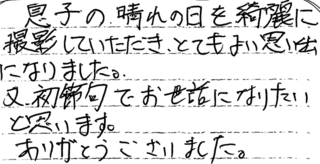 息子の晴れの日を綺麗に
撮影していただき、とてもよい思い出
になりました。
又、初節句でお世話になりたい
と思います。
ありがとうございました。